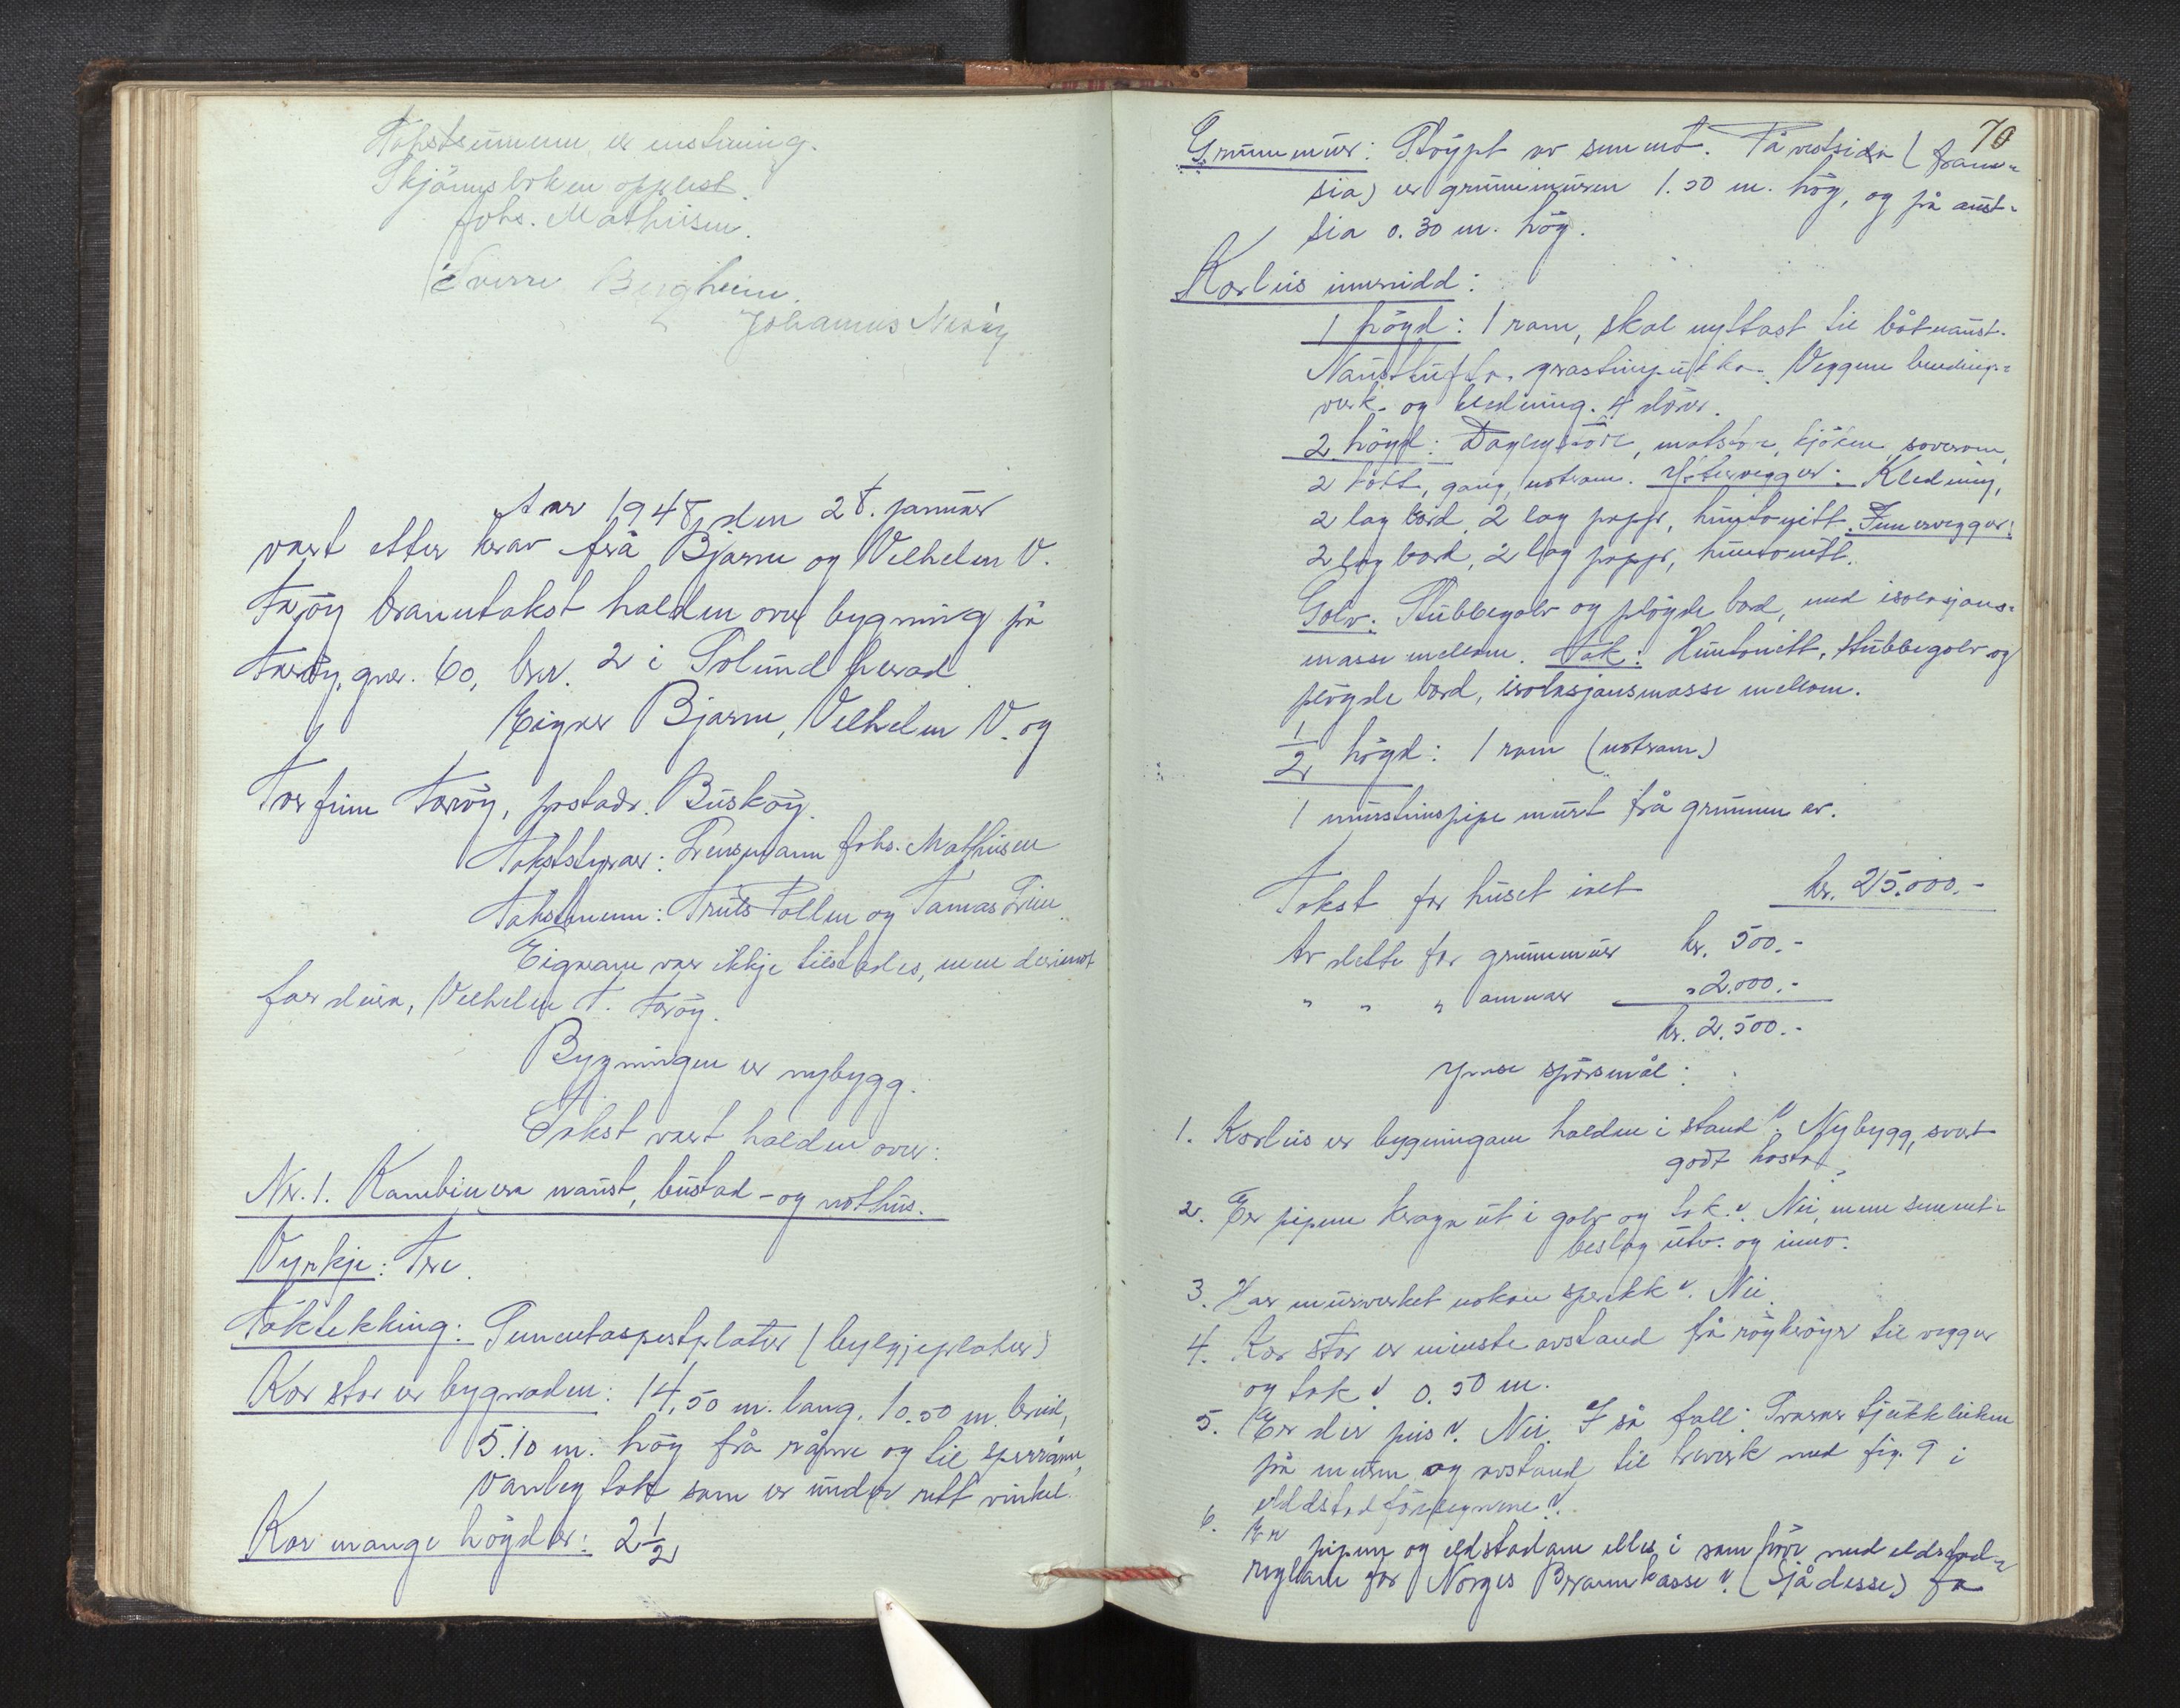 Takstsummen er enstemmig.
Skjönnsboken opplest.
Johs. Mathisen.
Sverre Bergheim.
Johannes Nesöy
Aar 1948, den 28. januar
vart etter krav frå Bjarne og Vilhelm V.
Faröy branntakst halden over bygning på
Faröy, gnr. 60, bnr. 2 i Solund herad.
Eigner Bjarne, Vilhelm V. og
Torfinn Faröy, postadr. Buskøy.
Takststyrar: Lensmann Johs. Mathisen
Takstmenn: Truls Pollen og Tomas Lien.
Eigarane var ikkje tilstades, men derimot
far deira, Vilhelm T. Faröy.
Bygningen er nybygg.
Takst vart halden over:
Nr. 1. Kombinera naust, bustad- og nothus.
Vyrkje: Tre.
Taktekking: Sementaspestplater (bylgjeplater)
Kor stor er bygnaden: 14.50 m. lang, 10.50 m. breid,
5.10 m. hög frå råme og til sperråme,
Vanleg tak som er under rett vinkel.
Kor mange högder: 2 1/2
70
Grunnmur: Stöypt av sement. På vestsida (fram-
sia) er grunnmuren 1.50 m. hög, og på aust-
sia 0.30 m. hög.
Korleis innreidd:
1 högd: 1 rom, skal nyttast til båtnaust.
Nausttufta. grasteinpukka. Veggene bindings-
verk. og kledning. 4 dörer.
2 högd: Daglegstove, matstove, kjöken, soverom,
2 kott, gang, notrom. Ytervegger: Kledning,
2 lag bord, 2 lag papp, huntonitt. Innervegger:
2 lag bord, 2 lag papp, huntonitt.
Golv: Stubbegolv og plögde bord, med isolasjons-
masse mellom. Tak: Huntonitt, stubbegolv og
plögde bord, isolasjonsmasse mellom.
1/2 högd: 1 rom (notrom)
1 mursteinspipe murt frå grunnen av.
Takst for huset ialt kr. 25.000.-
Av dette for grunnmur kr. 500.-
" " " annar " 2.000.-
kr. 2.500.-
Ymse spörsmål:
1. Korleis er bygningane haldne i stand? Nybygg, svært
godt hosta.
2. Er pipene kraga ut i golv og tak? Nei, men sement-
beslag utv. og innv.
3. Har murverket nokon sprekk? Nei.
4. Kor stor er minste avstand frå röykröyr til vegger
og tak? 0.50 m.
5. Er der peis? Nei. I så fall: Svarar tjukkleiken
på muren og avstand til treverk med fig. 9 i
eldstadföresegnene?
6. Er pipene og eldstadane elles i samhöve med eldstad-
reglane for Norges Brannkasse? (Sjå desse) Ja